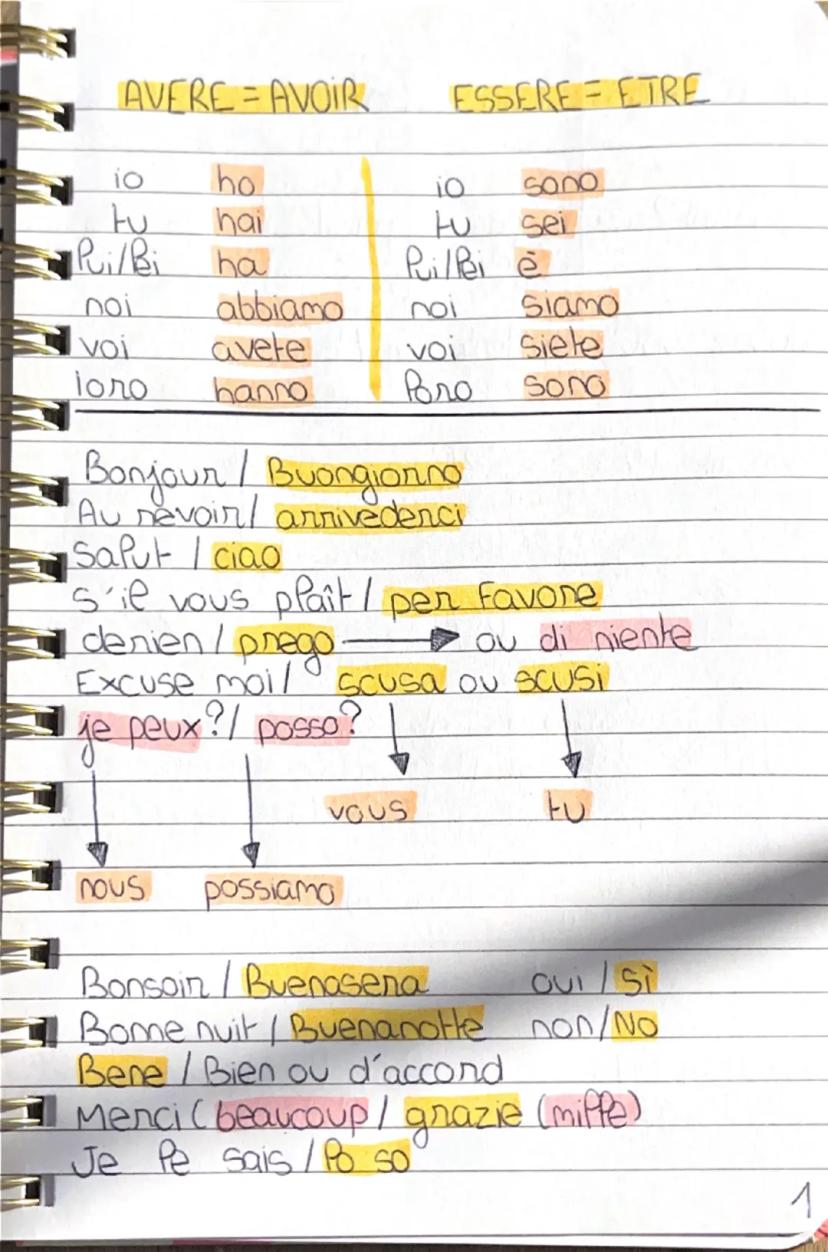 AVERE = AVOIR ESSERE = ETRE
io ho io sono
tu hai tu sei
lui/lei ha lui/lei è
noi abbiamo noi siamo
voi avete voi siete
loro hanno loro sono
Bonjour / Buongiorno
Au revoir / arrivederci
Salut / ciao
s'il vous plaît / per favore
derien / prego → ou di niente
Excuse moi / scusa ou scusi
je peux? / posso?
vous tu
nous possiamo
Bonsoir / Buenasera oui / Sì
Bonne nuit / Buenanotte non / No
Bene / Bien ou d'accord
Merci (beaucoup / grazie (mille)
Je le sais / lo so
1